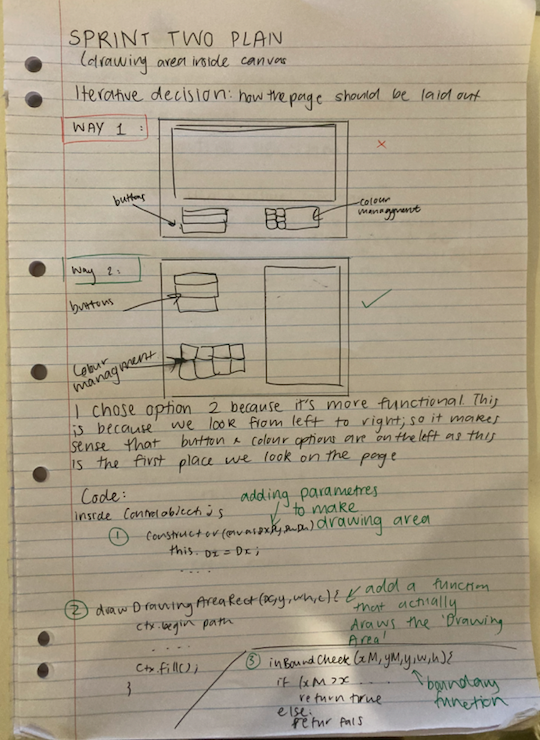 SPRINT TWO PLAN
(drawing area inside canvas
Iterative decision: how the page should be laid out
WAY 1 :
buttons
colour
managment
Way 2:
buttons
Colour
managment
I chose option 2 because it's more functional. This
is because we look from left to right, so it makes
sense that button & colour options are on the left as this
is the first place we look on the page
Code:
inside
adding parametres
to make
drawing area
① constructor(
this. Dx = Dx;
....
② draw Drawing Area Rect (x,y,w,h,c) {
ctx.begin path
....
ctx.fill();
}
add a function
that actially
draws the 'Drawing
Area'
③ inBoundCheck (xM, yM,y,w,h){
if (xM >x ....
return true
else:
retur fals
boundary
function